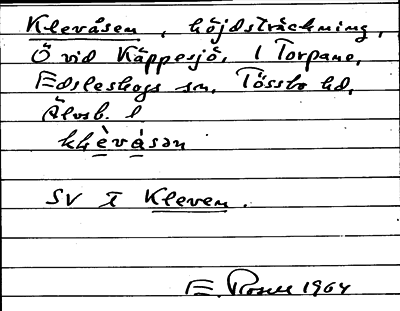 Klevåsen, höjdsträckning,
Ö vid Käppesjö, 1 Torpane,
Edsleskogs sn, Tössbo hd,
Älvsb. l
klè̱vå̱sən
SV I Kleven.
E. Rosell 1964